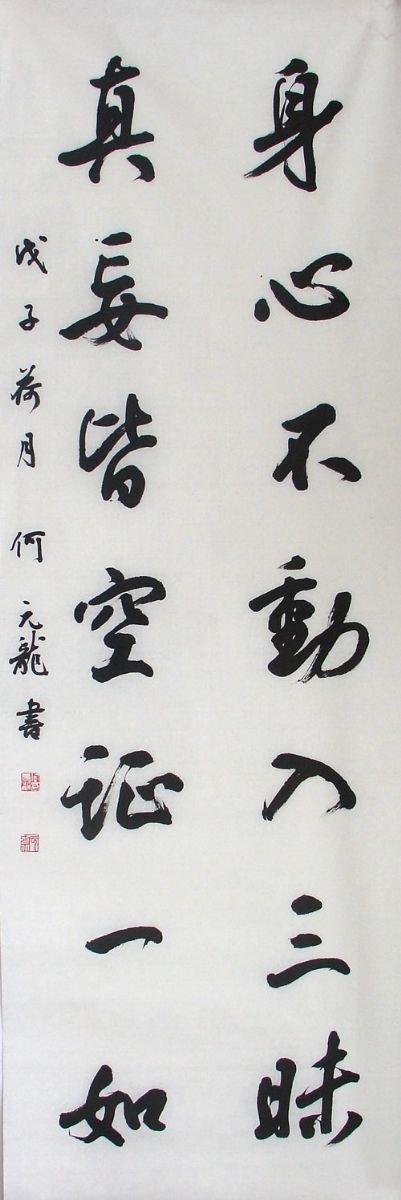 身心不動入三昧
真妄皆空証一如
戊子荷月 何元龍書